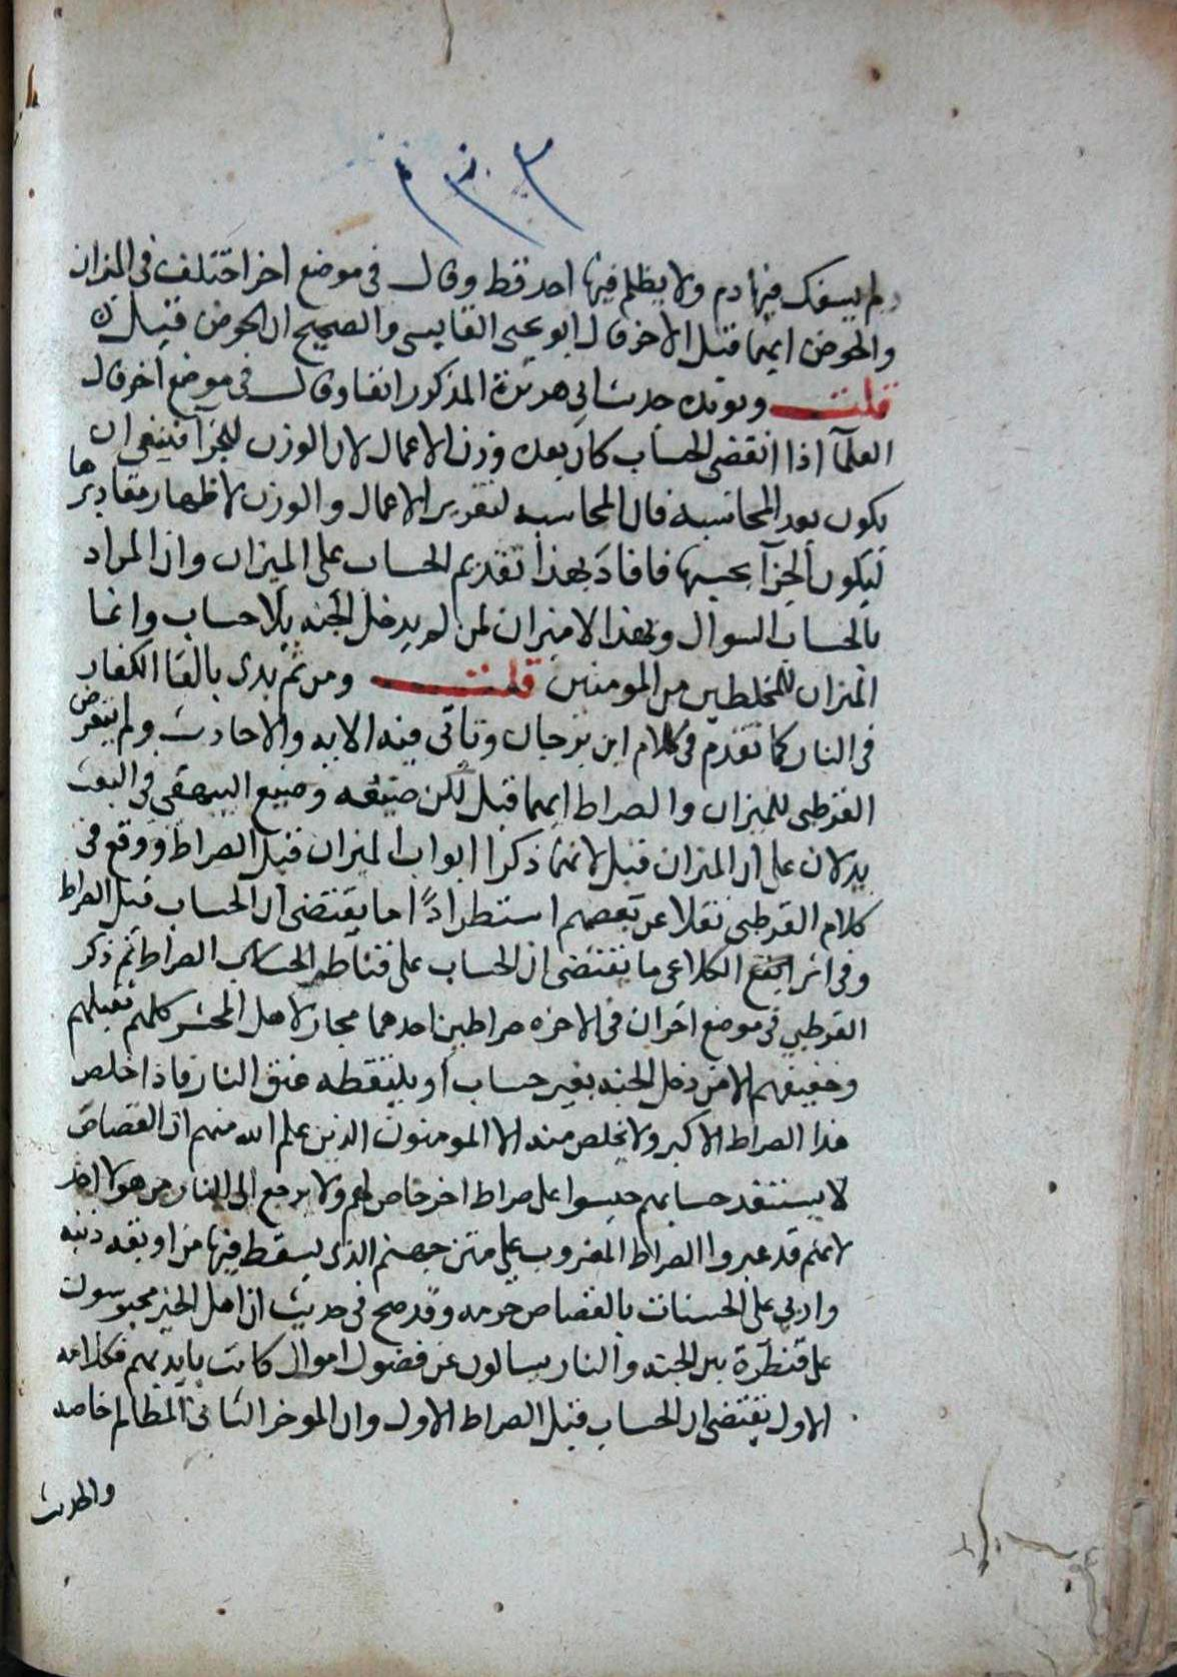 لم يسفك فيها دم ولا يظلم فيها احد قط وقال في موضع اخر اختلف في الميزان
والحوض ايهما قبل الاخر قال ابو يحيى القابسي والصحيح ان الحوض قبل
قلت ويويده حديث ابي هريرة المذكور انفا وقال في موضع اخر قال
العلمآ اذا انقضى الحساب كان بعده وزن الاعمال لان الوزن للجزآ فينبغي ان
يكون بعد المحاسبه فان المحاسبه لتقرير الاعمال والوزن لاظهار مقاديرها
ليكون الجزآ بحسبها فافاد بهذا تقديم الحساب على الميزان وان المراد
بالحساب السوال ولهذا لا ميزان لمن لم يدخل الجنه بلا حساب وانما
الميزان للمخلطين من المومنين قلت ومن ثم بدى بالقا الكفار
في النار كما تقدم في كلام ابن برجان وتاتى فيه الايه والاحاديث ولم يتعرض
القرطبى للميزان والصراط ايهما قبل لكن صنيعه وصنيع البيهقي في البعث
يدلان على ان الميزان قبل لانهما ذكرا ابواب الميزان قبل الصراط ووقع في
كلام القرطبى نقلا عن بعضهم استطرادًا ما يقتضى ان الحساب قبل الصراط
وفي اثر ايفع الكلاعى ما يقتضى ان الحساب على قناطر الصراط ثم ذكر
القرطبي في موضع اخر ان في الاخره صراطين احدهما مجاز لاهل المحشر كلهم ثقيلهم
وخفيفهم الا من دخل الجنه بغير حساب او يلتقطه عنق النار فاذا خلص
هذا الصراط الاكبر ولا يخلص منه الا المومنون الذين علم الله منهم ان القصاص
لا يستنفد حسابهم حبسوا على صراط اخر خاص لهم ولا يرجع الى النار من هولا احد
لانهم قد عبروا الصراط المضروب على متن جهنم الذى يسقط فيها من اوبقه ذنبه
واربي على الحسنات بالقصاص جرمه وقد صح في حديث ان اهل الجنه محبوسون
على قنطرة بين الجنه والنار يسالون عن فضول اموال كانت بايديهم فكلامه
الاول يقتضى ان الحساب قبل الصراط الاول وان الموخر الثانى المظالم خاصه
والحديث